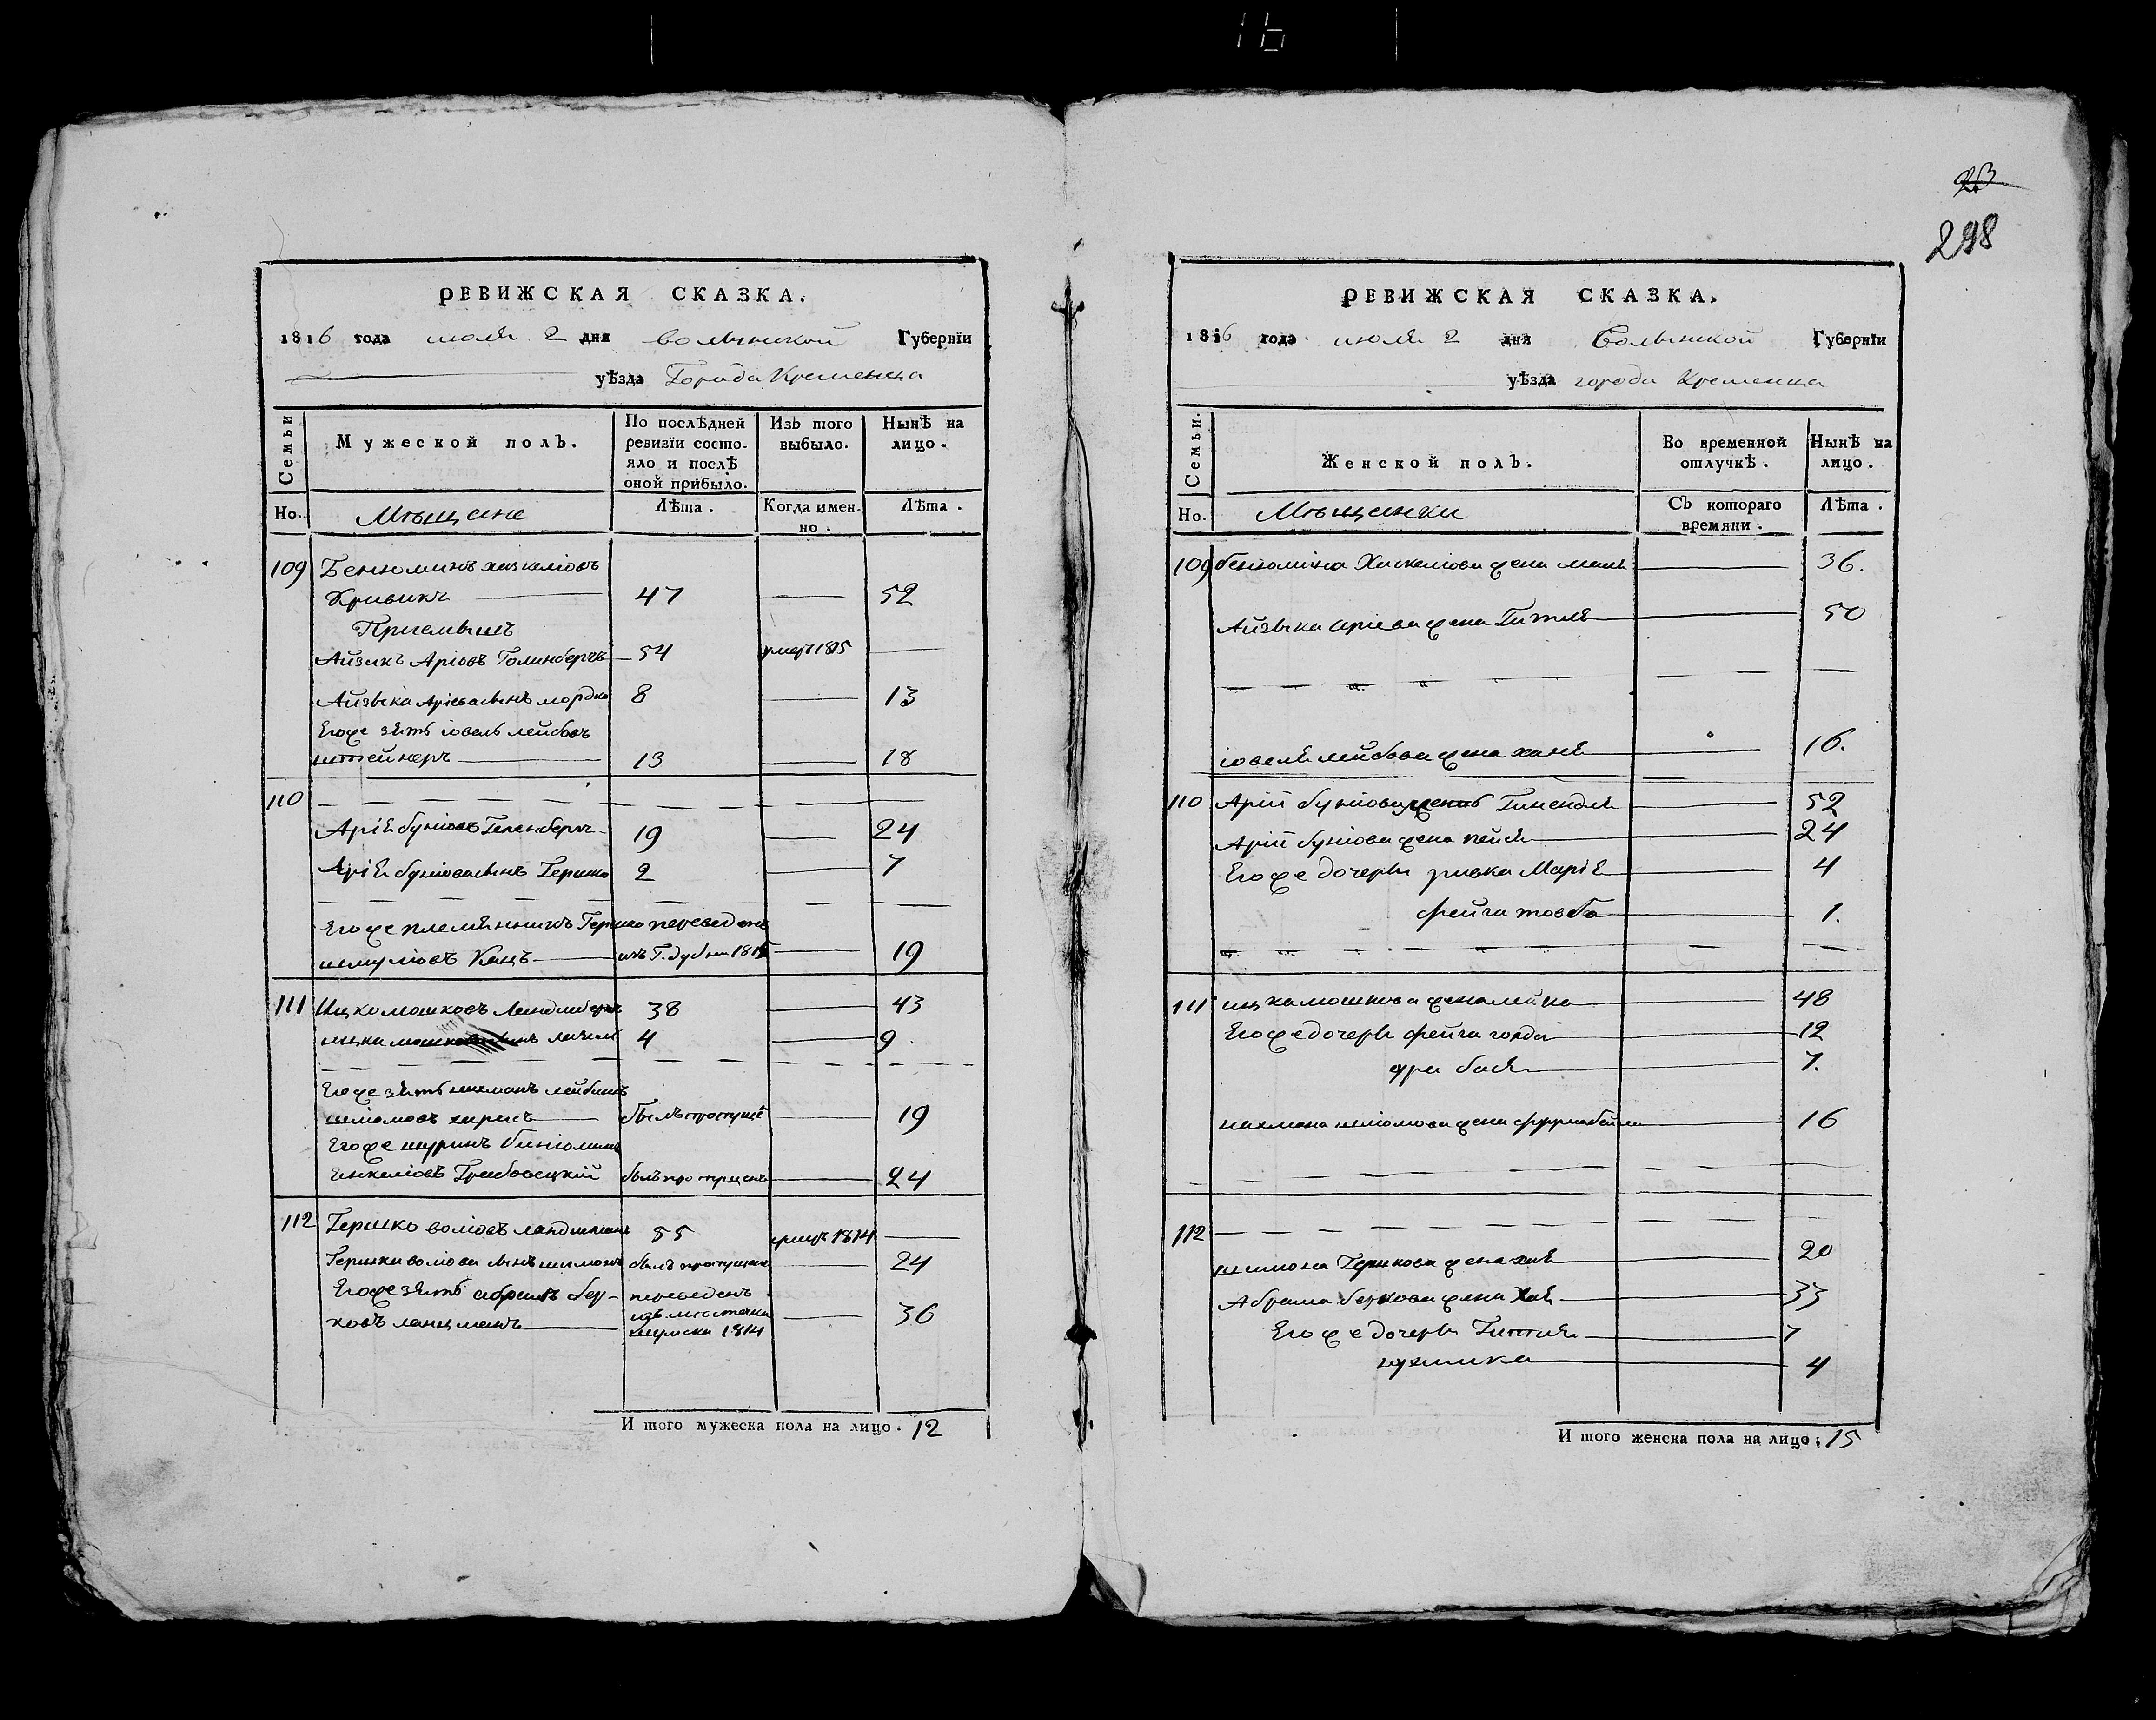 16
23
298
РЕВИЖСКАЯ СКАЗКА.
1816 года июля 2 дня Волынской Губерніи
уѣзда Города Кременца
Семьи
Мужеской полъ.
По послѣдней ревизіи состо-
яло и послѣ
оной прибыло.
Изъ того выбыло.
Нынѣ на лицо.
Но.
Мѣщане
Лѣта.
Когда имен-
но.
Лѣта.
109 Бенюминъ хаскеліовъ
Кривикъ 47 52
Приемышъ
Айзикъ Аріовъ Голинбергъ 54 умеръ 1815
Айзыка Аріева сынъ мордко 8 13
Егоже зять іовель лейбовъ
штейнеръ 13 18
110
Арій буніовъ Геленбергъ 19 24
Арій буніова сынъ Гершко 2 7
Егоже племянникъ Гершко переведенъ
шмуліовъ Кацъ изъ Г. Дубна 1815 19
111 Ицко мошковъ Ландшбергъ 38 43
ицка 4 9
Егоже зять нахманъ лейбишъ
шліомовъ был пропущ 19
Егоже шуринъ биніоминъ
Енкеліовъ Грабовецкій былъ пропущенъ 24
112 Гершко воліовъ 55 умеръ 1814
Гершка воліова сынъ шимонъ былъ пропущенъ 24
Егоже зять абрамъ бер-
ковъ ланцманъ переведенъ
изъ мѣстечка
1814 36
И того мужеска пола на лицо. 12
РЕВИЖСКАЯ СКАЗКА.
1816 года июля 2 дня Волынской Губерніи
уѣзда города Кременца
Семьи.
Женской полъ.
Во временной отлучкѣ.
Нынѣ на лицо.
Но.
Мѣщанки
Съ котораго времяни.
Лѣта.
109 бенюмина Хаскеліова жена 36.
Айзыка аріева жена Гитля 50
іовеля лейбова жена ханя 16.
110 Арій буніова Гинендля 52
Арій буніова жена пейся 24
Егоже дочери ривка Марія 4
фейга товба 1.
111 ицка мошкова жена лейка 48
Егоже дочери фейга голда 12
бася 7.
нахмана шліомова жена 16
112
шимона Гершкова жена хая 20
Абрама берковa жена Хая 33
Егоже дочери Гитля 7
4
И того женска пола на лицо: 15